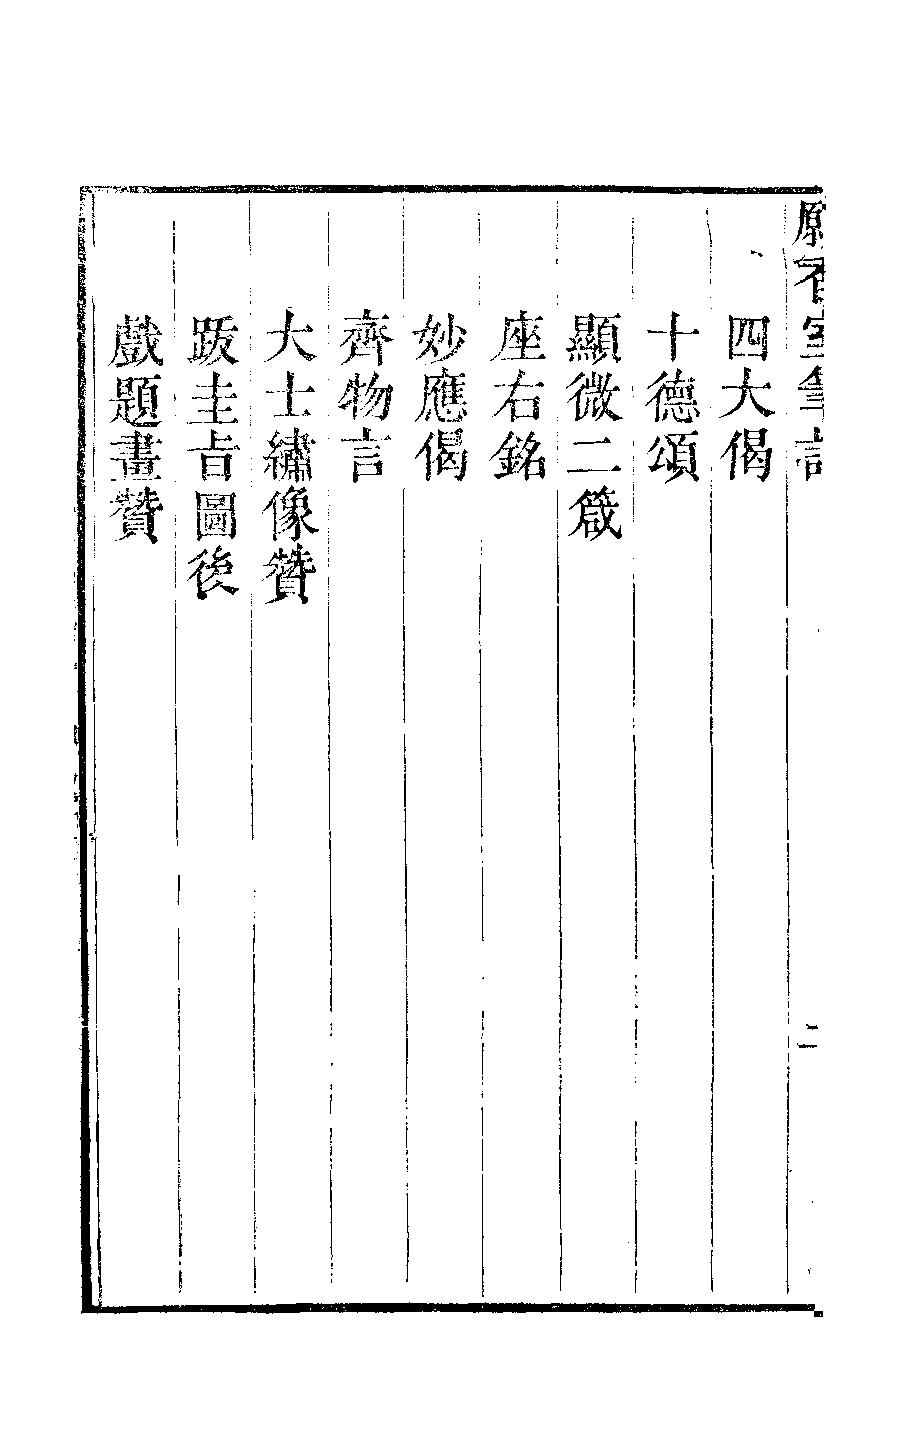 願香室筆記
二
四大偈
十德頌
顯微二箴
座右銘
妙應偈
齊物言
大士繡像贊
跋圭㫖圖後
戲題畫贊